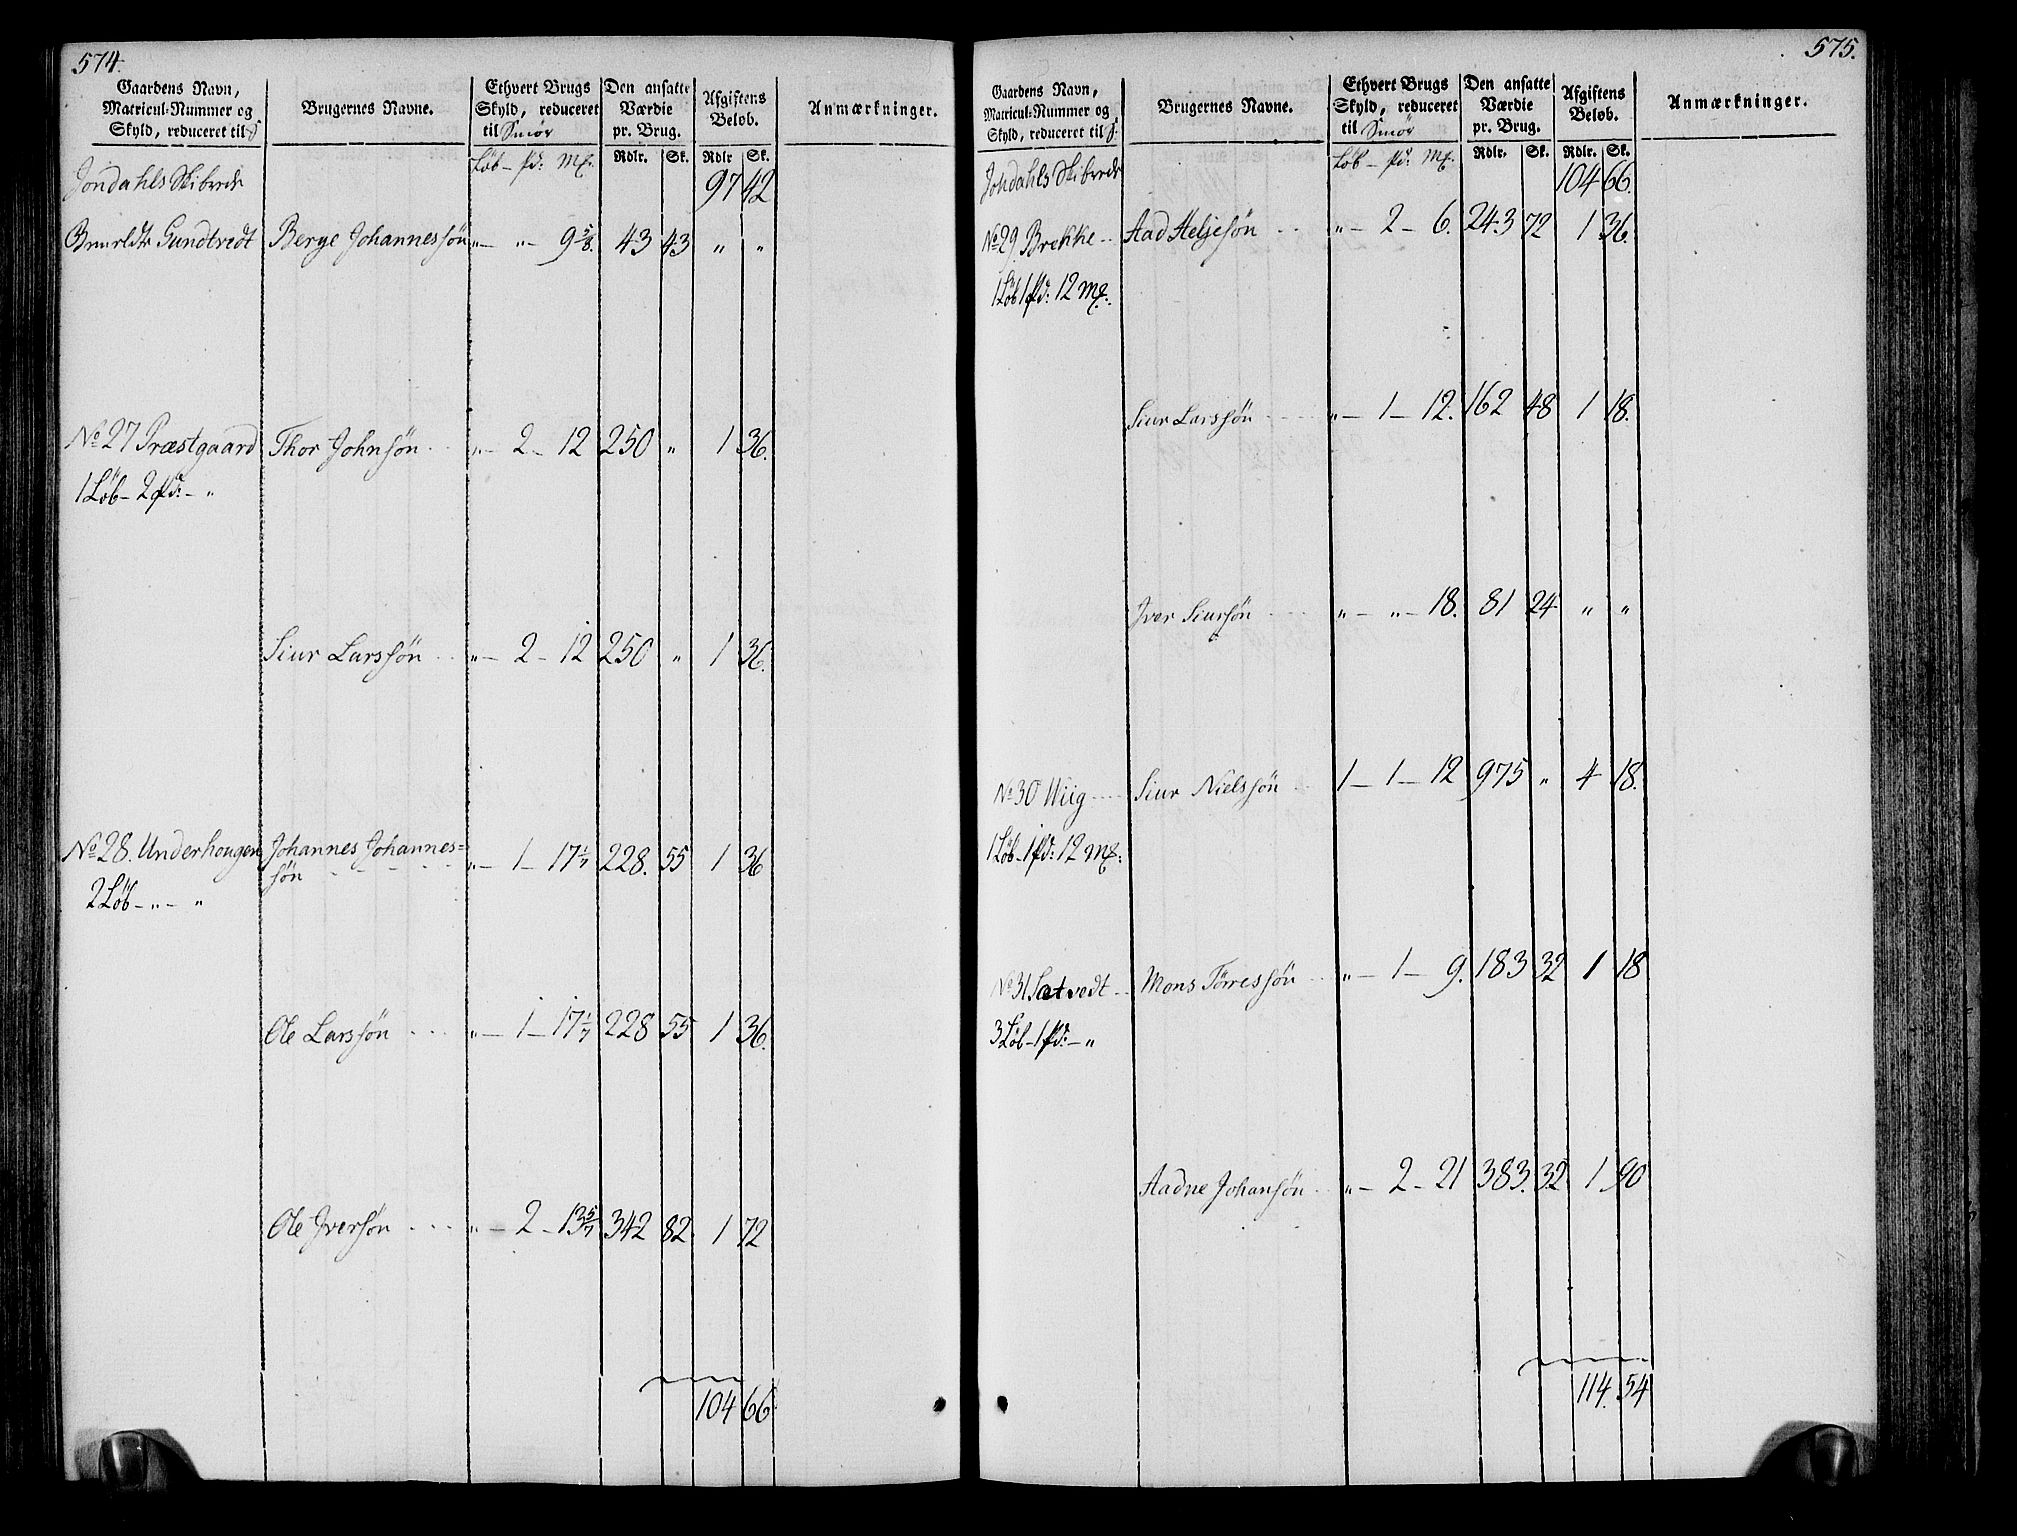 574.
Gaardens Navn, Matricul-Nummer og Skyld, reduceret til
Brugernes Navne.
Ethvert Brugs Skyld, reduceret til Smør
Den ansatte Værdie pr. Brug.
Afgiftens Beløb.
Anmærkninger.
Løb - pd: Mk. Rdlr. Sk. Rdlr Sk.
Jondahls Skibrede 97 42
Gundtvedt Berge Johannessøn „ - „ - 9 5/8. 43 43 „ „
No 27 Præstgaard Thor Johnsøn „ - 2 - 12 250 „ 1 36.
1 Løb - 2 pd: - „
Siur Larssøn „ - 2 - 12 250 „ 1 36.
No 28. Underhougen Johannes Johannes=
søn „ - 1 - 17 1/7 228. 55 1 36
2 Løb - „ - „
Ole Larssøn „ - 1 - 17 1/7 228 55 1 36.
Ole Iversøn „ - 2 - 13 5/7 342 82. 1 72
104 66.
575.
Gaardens Navn, Matricul-Nummer og Skyld, reduceret til
Brugernes Navne.
Ethvert Brugs Skyld, reduceret til Smør
Den ansatte Værdie pr. Brug.
Afgiftens Beløb.
Anmærkninger.
Løb - pd: Mk. Rdlr. Sk. Rdlr. Sk.
Jondahls Skibrede 104 66.
No 29. Brekke Aad Heljesøn „ - 2 - 6. 243 72 1 36.
1 Løb 1 pd: 12 Mk.
Siur Larssøn „ - 1 - 12. 162 48 1 18.
Iver Siursøn „ - „ - 18. 81 24 „ „
No 30 Wiig Siur Nielssøn 1 - 1 - 12 975 „ 4 18.
1 Løb - 1 pd: 12 Mk.
No 31 Sætvedt Mons Tørressøn „ - 1 - 9. 183 32 1 18
3 Løb - 1 pd: - „
Aadne Johansøn „ - 2 - 21 383. 32. 1 90
114. 54